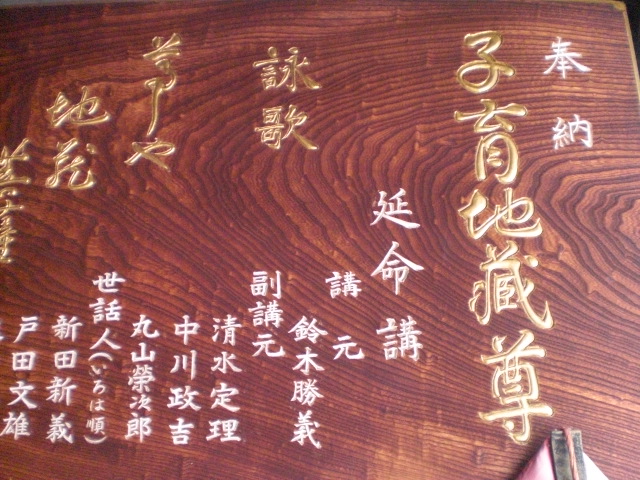 奉納
子育地蔵尊
延命講
講元
鈴木勝義
詠歌
副講元
清水定理
中川政吉
丸山榮次郎
世話人(いろは順)
地蔵
新田新義
戸田文雄